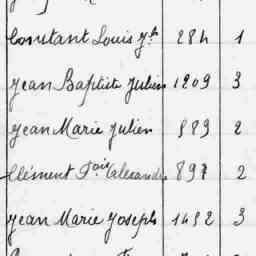 Constant Louis Jh 284 1
Jean Baptiste Julien 1209 3
Jean Marie Julien 889 2
Clément Fois Alexandre 897 2
Jean Marie Joseph 1452 3